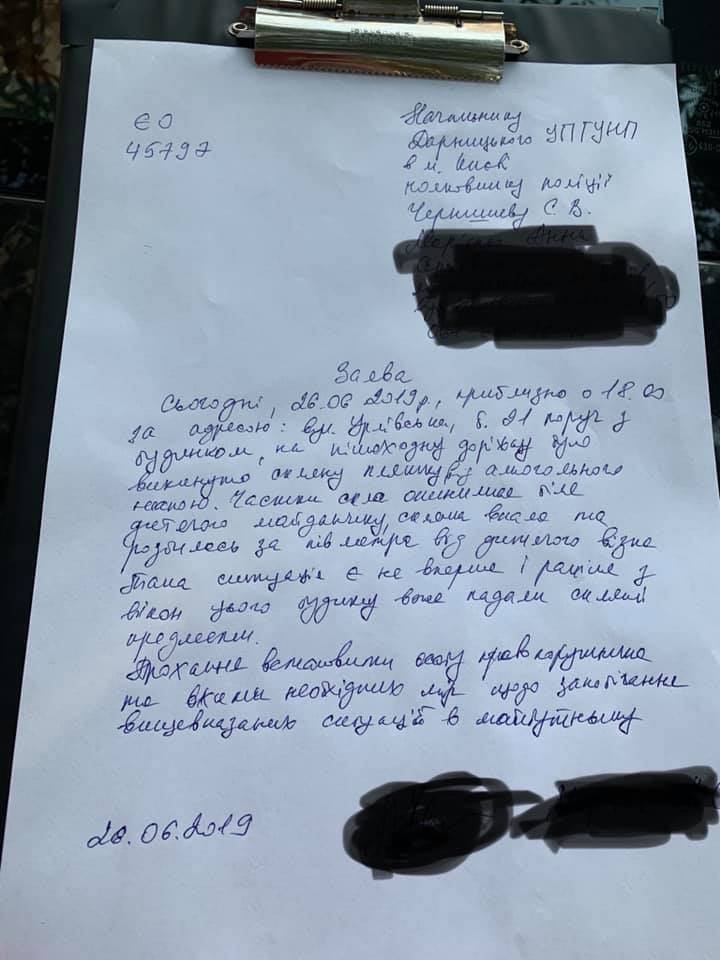 ЄО
45797
Начальнику
Дарницького УПГУНП
в м. Києві
полковнику поліції
Чернишеву С. В.
Заява
Сьогодні, 26.06 2019р., приблизно о 18.00
за адресою: вул. Урлівська, б. 21 поруч з
будинком, на пішохідну доріжку було
викинуто скляну пляшку від алкогольного
напою. Частки скла опинилися біля
дитячого майданчику, склона впала та
розбилась за пів метра від дитячого візка
Така ситуація є не вперше і раніше з
вікон цього будинку вже падали скляні
предмети.
Прохання встановити особу правопорушника
та вжити необхідних мір щодо запобігання
вищевказаних ситуацій в майбутньому
26.06.2019